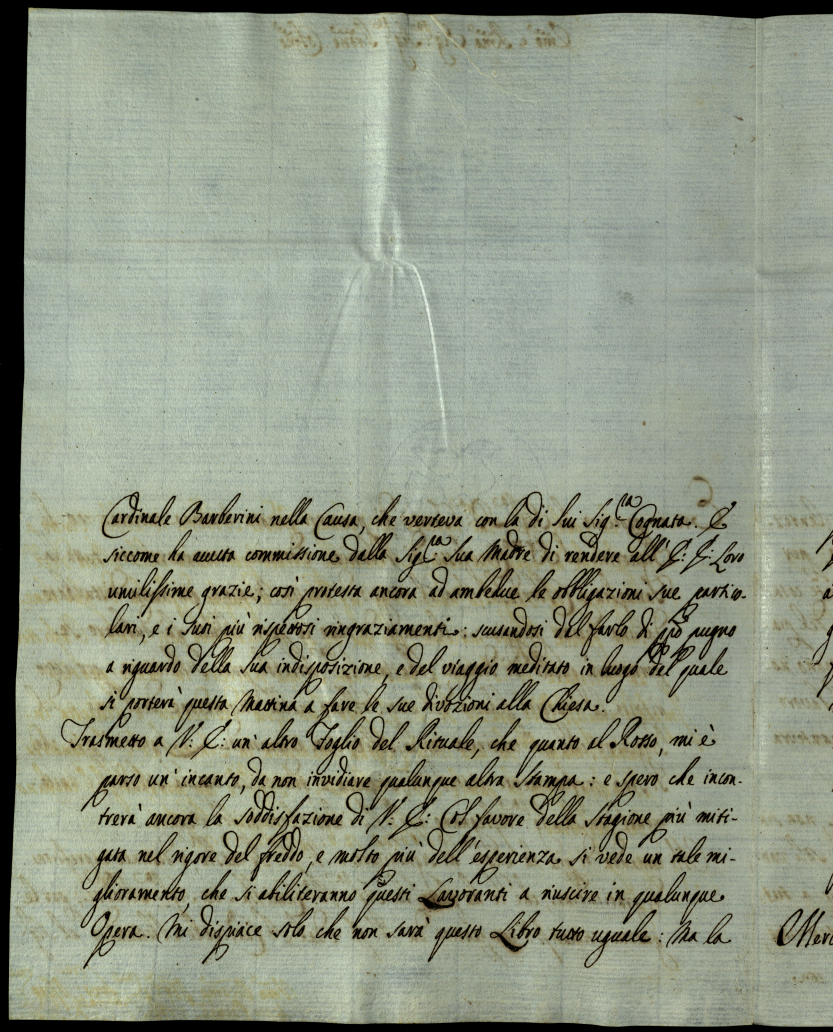 Cardinale Barberini nella Causa, che verteva con la di lui Sig.ra Cognata. E
siccome ha avuta commissione dalla Sig.ra sua Madre di rendere all' E: E: Loro
umilissime grazie; così protesta ancora ad ambedue le obbligazioni sue partico-
lari, e i suoi più rispettosi ringraziamenti: scusandosi del farlo di pp̃o pugno
a riguardo della sua indisposizione, e del viaggio meditato in luogo del quale
si porterà questa Mattina a fare le sue divozioni alla Chiesa.
Trasmetto a V: E: un' altro Foglio del Rituale, che quanto al Rosso, mi è
parso un' incanto, da non invidiare qualunque altra Stampa: e spero che incon-
trerà ancora la Soddisfazione di V: E: Col favore della Stagione più miti-
gata nel rigore del freddo, e molto più dell' esperienza si vede un tale mi-
glioramento, che si abiliteranno questi Lavoranti a riuscire in qualunque
Opera. Mi dispiace solo che non sarà questo Libro tutto uguale: Ma la